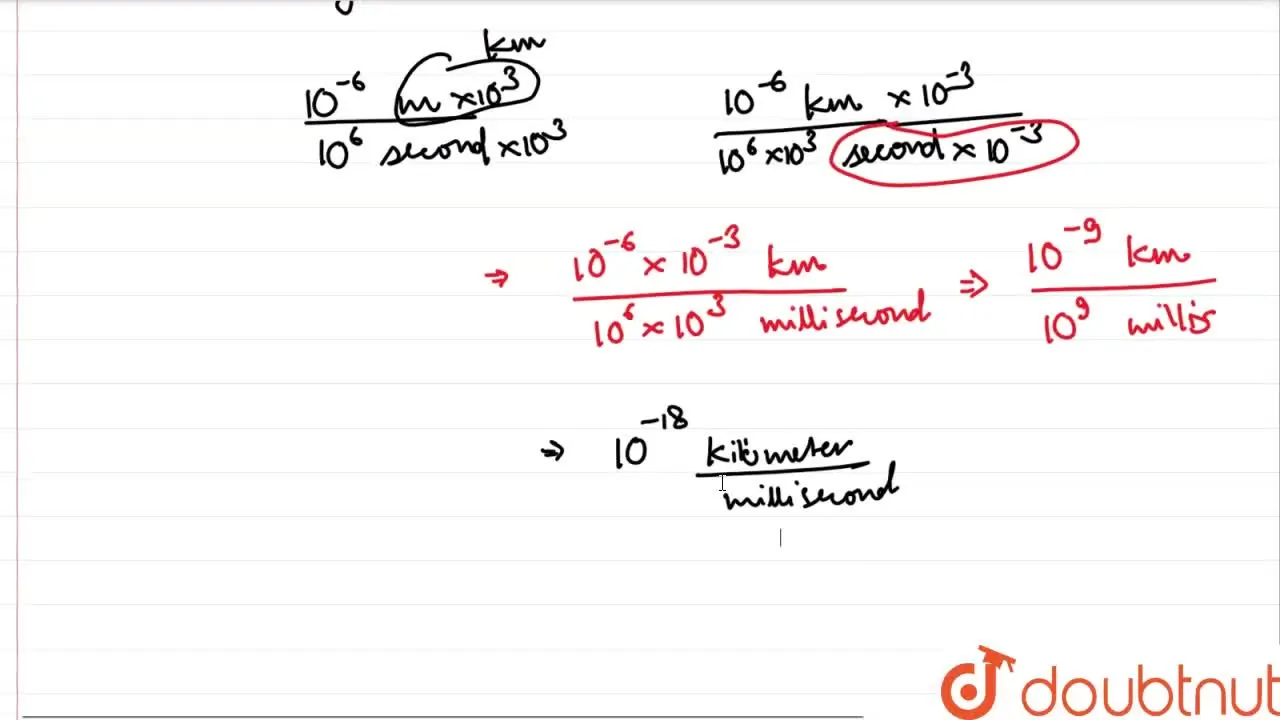 km
10⁻⁶ m ×10³ / 10⁶ second ×10³
10⁻⁶ km × 10⁻³ / 10⁶ ×10³ second × 10⁻³
⇒ 10⁻⁶ × 10⁻³ km / 10⁶ × 10³ millisecond ⇒ 10⁻⁹ km / 10⁹ millis
⇒ 10⁻¹⁸ kilometer / millisecond
doubtnut